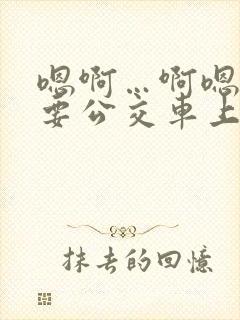 嗯啊…啊嗯
要公交车上
抹去的回憶